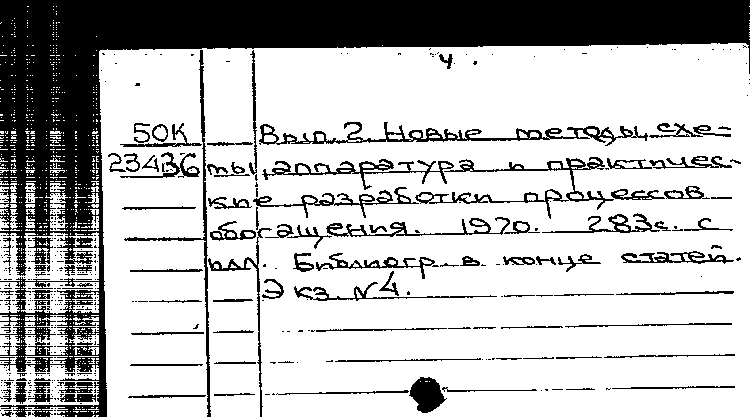 4.
50К Вып. 2. Новые методы, схе-
23436 мы, аппаратура и практичес-
кие разработки процессов
обогащения. 1970. 283с. с
илл. Библиогр. в конце статей.
Экз. №4.